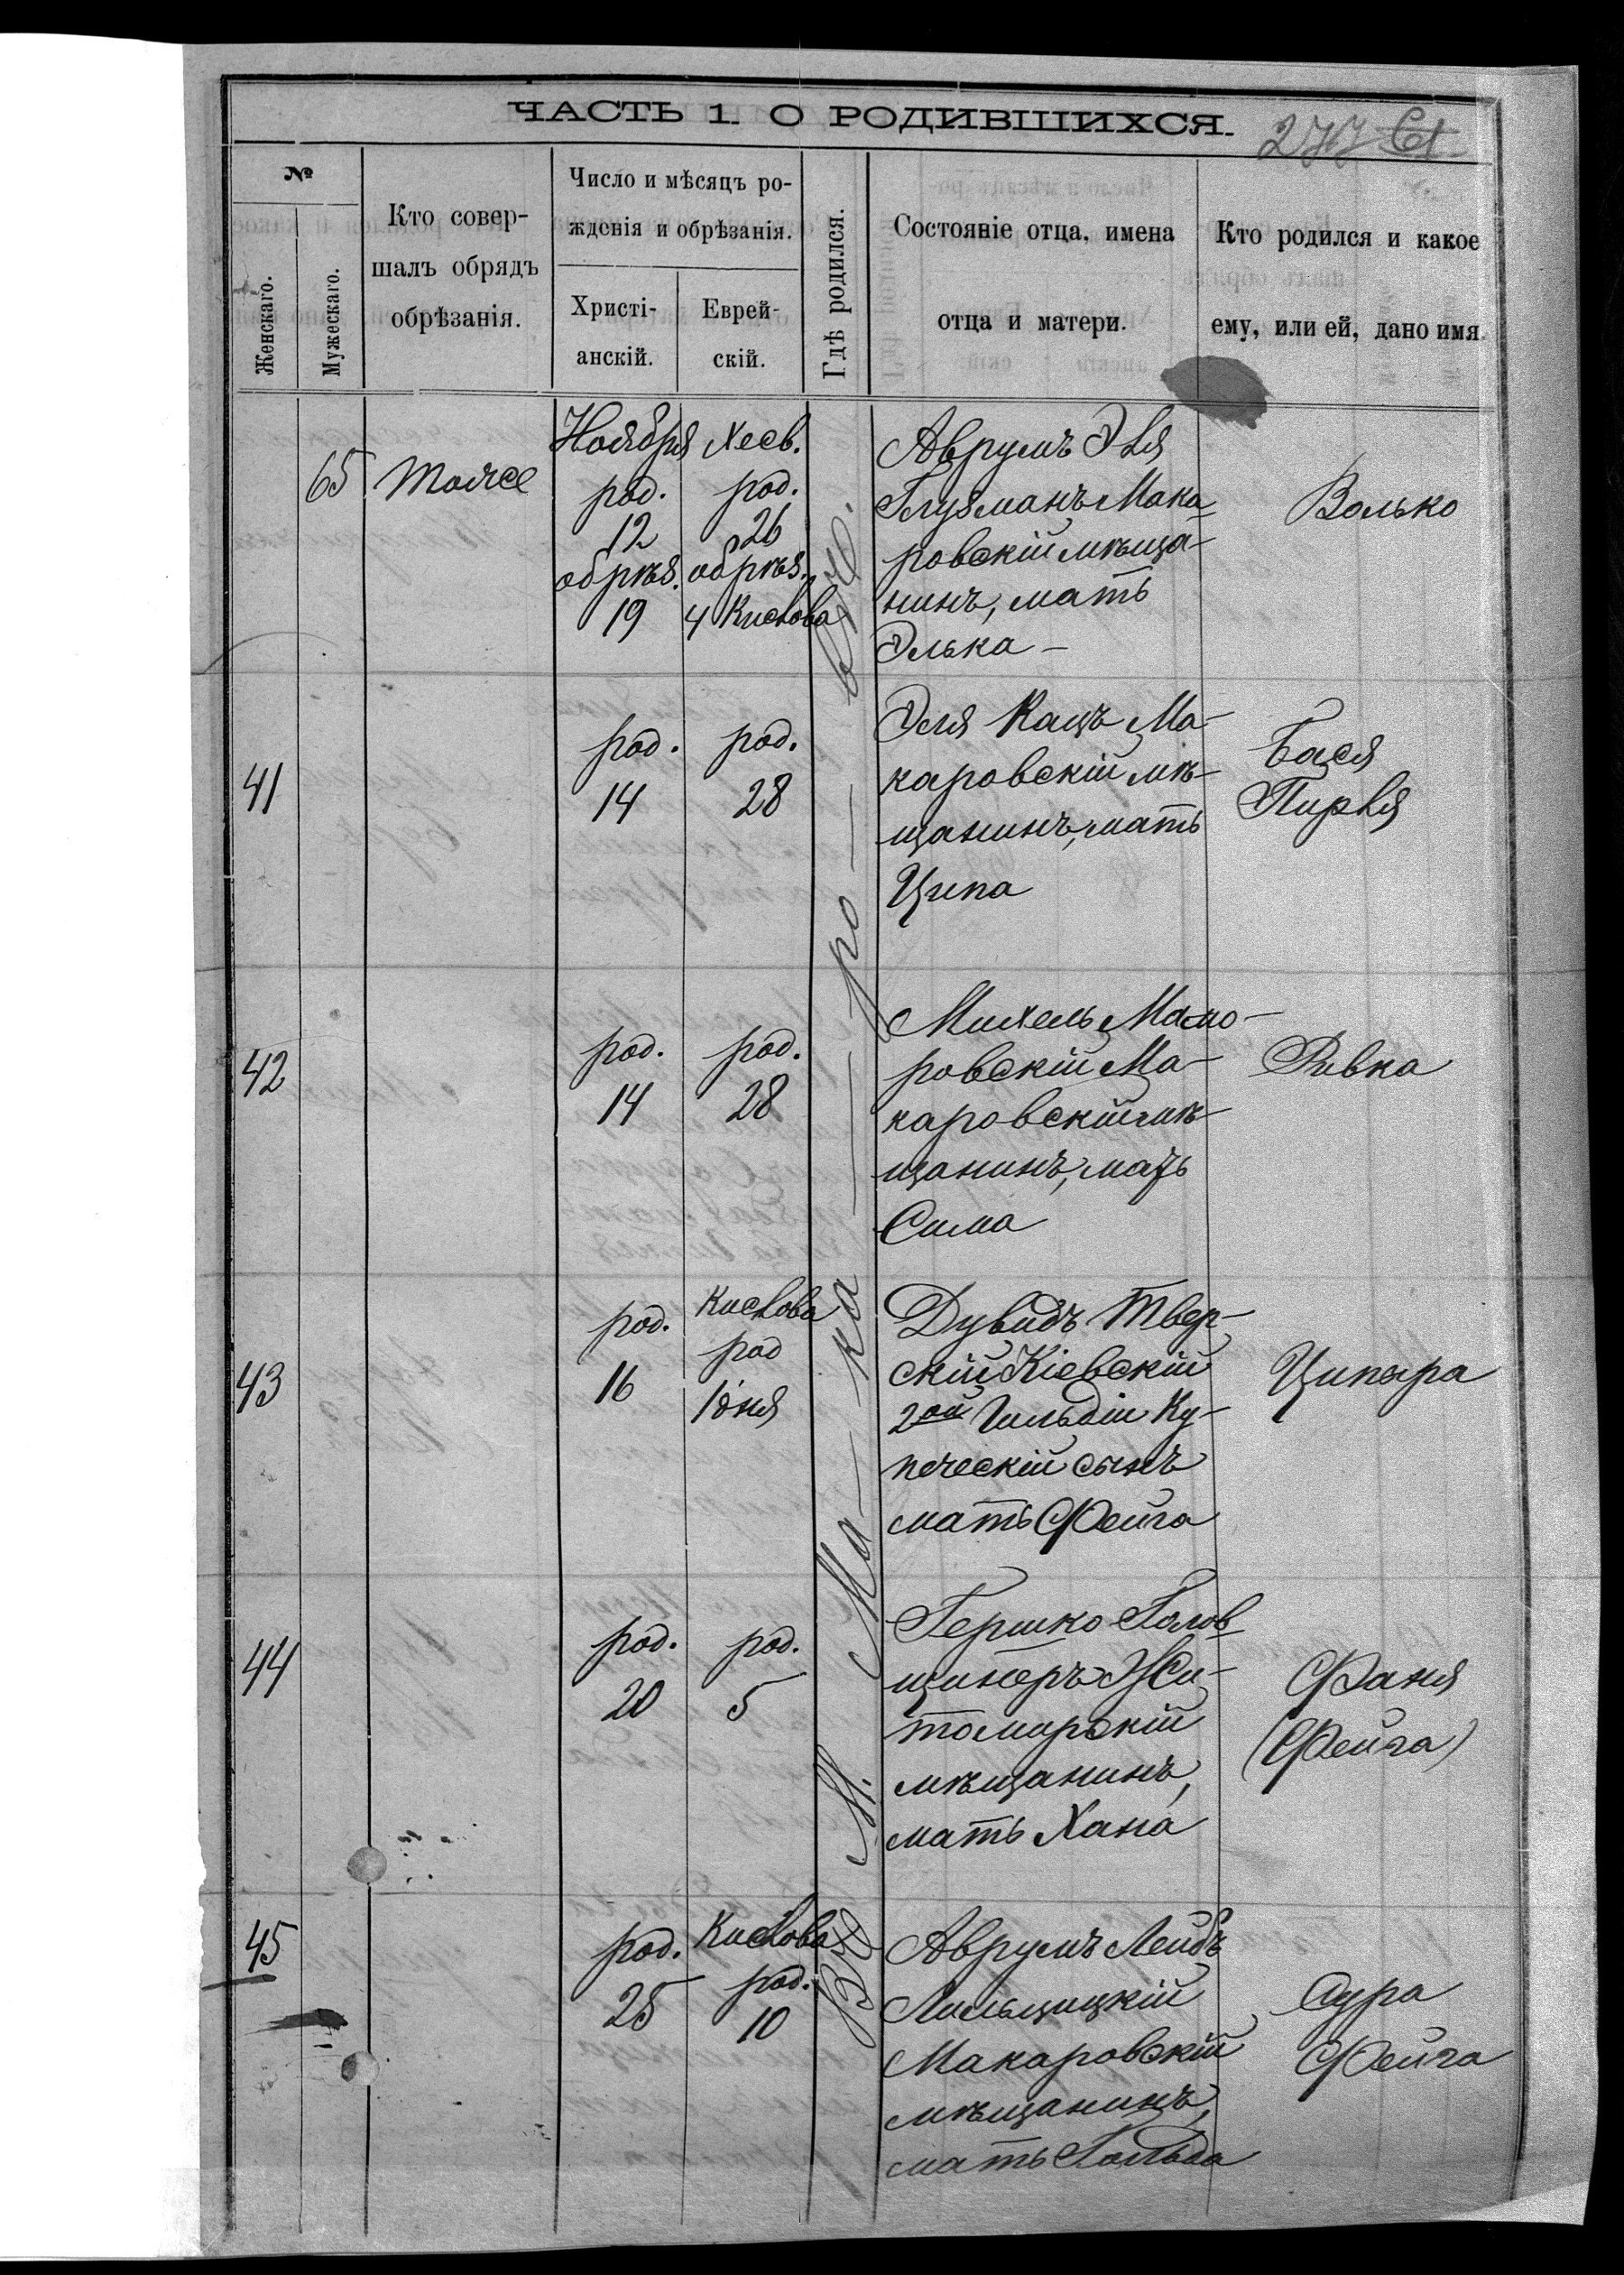 ЧАСТЬ 1. О РОДИВШИХСЯ.
277
№
Женскаго.
Мужескаго.
Кто совер-
шалъ обрядъ
обрѣзанія.
Число и мѣсяцъ ро-
жденія и обрѣзанія.
Христі-
анскій.
Еврей-
скій.
Гдѣ родился.
Состояніе отца, имена
отца и матери.
Кто родился и какое
ему, или ей, дано имя.
65
Тоже
Ноября
род.
12
обрѣз.
19
Хесв.
род.
26
обрѣз.
4 Кислова
Въ М. Ма-ка-ро-вѣ.
Аврумъ Эля
Глузманъ Мака-
ровскій мѣща-
нинъ, мать
Элька
Волько
41
род.
14
род.
28
Эля Кацъ Ма-
каровскій мѣ-
щанинъ, мать
Ципа
Бася
Пирля
42
род.
14
род.
28
Михель Мако-
ровскій Ма-
каровскій мѣ-
щанинъ, мать
Сима
Ривка
43
род.
16
Кислова
род
1 дня
Дувидъ Твер-
скій Кіевскій
2ой Гильдіи Ку-
печескій сынъ
мать Фейга
Ципыра
44
род.
20
род.
5
Гершко Голов-
щинеръ Жи-
томирскій
мѣщанинъ,
мать Хана
Фаня
(Фейга)
45
род.
25
Кислова
род.
10
Аврумъ Лейбъ
Макаровскій
мѣщанинъ,
мать Гольда
Сура
Фейга